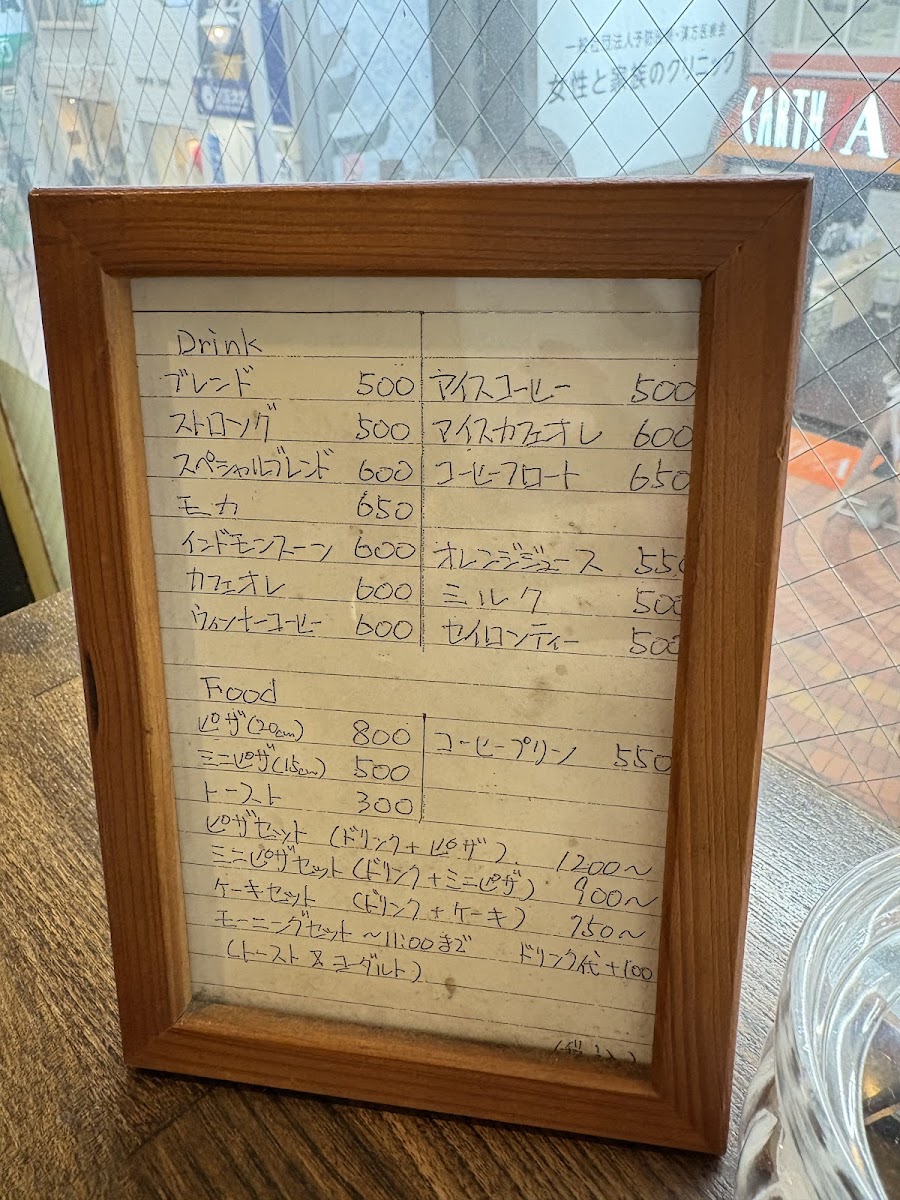 一般社団法人予防医療・漢方医療会
女性と家族のクリニック
EARTH
A
Drink
ブレンド 500
ストロング 500
スペシャルブレンド 600
モカ 650
インドモンスーン 600
カフェオレ 600
ウィンナーコーヒー 600
アイスコーヒー 500
アイスカフェオレ 600
コーヒーフロート 650
オレンジジュース 550
ミルク 500
セイロンティー 500
Food
ピザ(20cm) 800
ミニピザ(15cm) 500
トースト 300
コーヒープリン 550
ピザセット (ドリンク+ピザ) 1200〜
ミニピザセット(ドリンク+ミニピザ) 900〜
ケーキセット (ドリンク+ケーキ) 750〜
モーニングセット 〜11:00まで ドリンク代+100
(トースト&ヨーグルト)